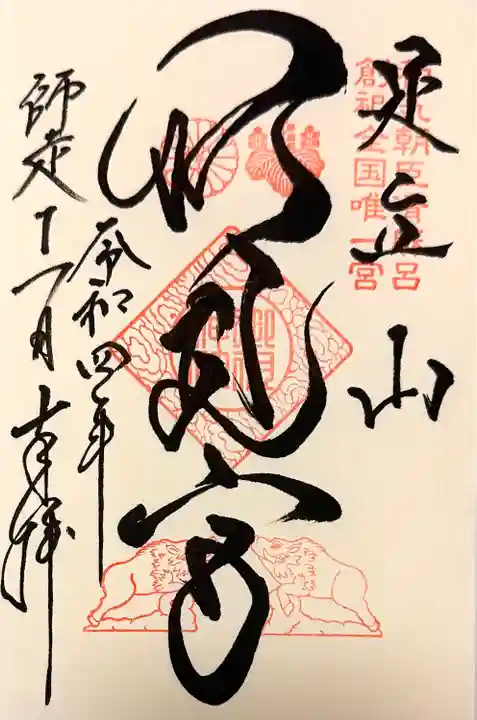 和気朝臣清麻呂
創祖全国唯一宮
足立山
妙見宮
令和四年
師走十一日奉拝